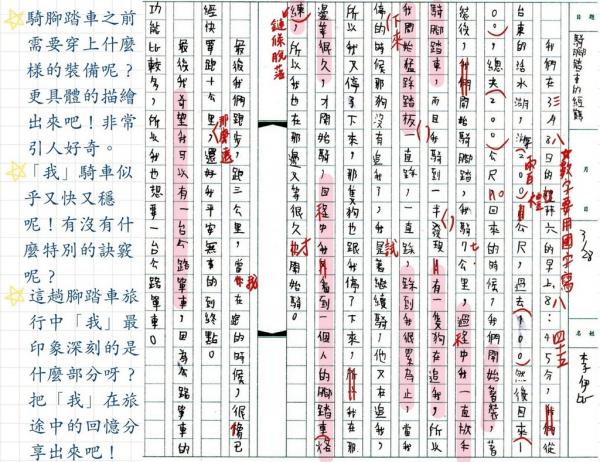 題目
騎腳踏車的經驗
月 日
3/28
姓名
李伊
數字要用國字寫
我們在3月28日的星期六的早上8:45分,我們從
台東的活水湖,游200公尺,過去100,然後回來
100,總共200公尺。回來的時候,我們開始著裝,著
裝後,我們開始騎腳踏,騎7公里,過程中我一直放手
騎腳踏車,而且我騎到一半發現有一隻狗在追我,所以
我開始猛踩踏板,一直踩,踩到我很累為止,當我
停的時候那狗沒有追我了,我是著繼續騎,他又在追我,
所以我又停了下來,那隻狗也跟我停了下來,我在那
邊等很久,才開始騎。回程中我看到一個人的腳踏車烙
練,所以我也在那邊又等很久,才開始騎。
鏈條脫落
最後我們跑步,跑三公里,當我在跑的時候,很像已
經快要跑十公里,還好我平安無事的到終點。
那麼遠
最後我奇望我可以有一台公路單車,因為公路單車的
功能比較多,所以我也想要一台公路單車。
騎腳踏車之前
需要穿上什麼
樣的裝備呢?
更具體的描繪
出來吧!非常
引人好奇。
「我」騎車似
乎又快又穩
呢!有沒有什
麼特別的訣竅
呢?
這趟腳踏車旅
行中「我」最
印象深刻的是
什麼部分呀?
把「我」在旅
途中的回憶分
享出來吧!